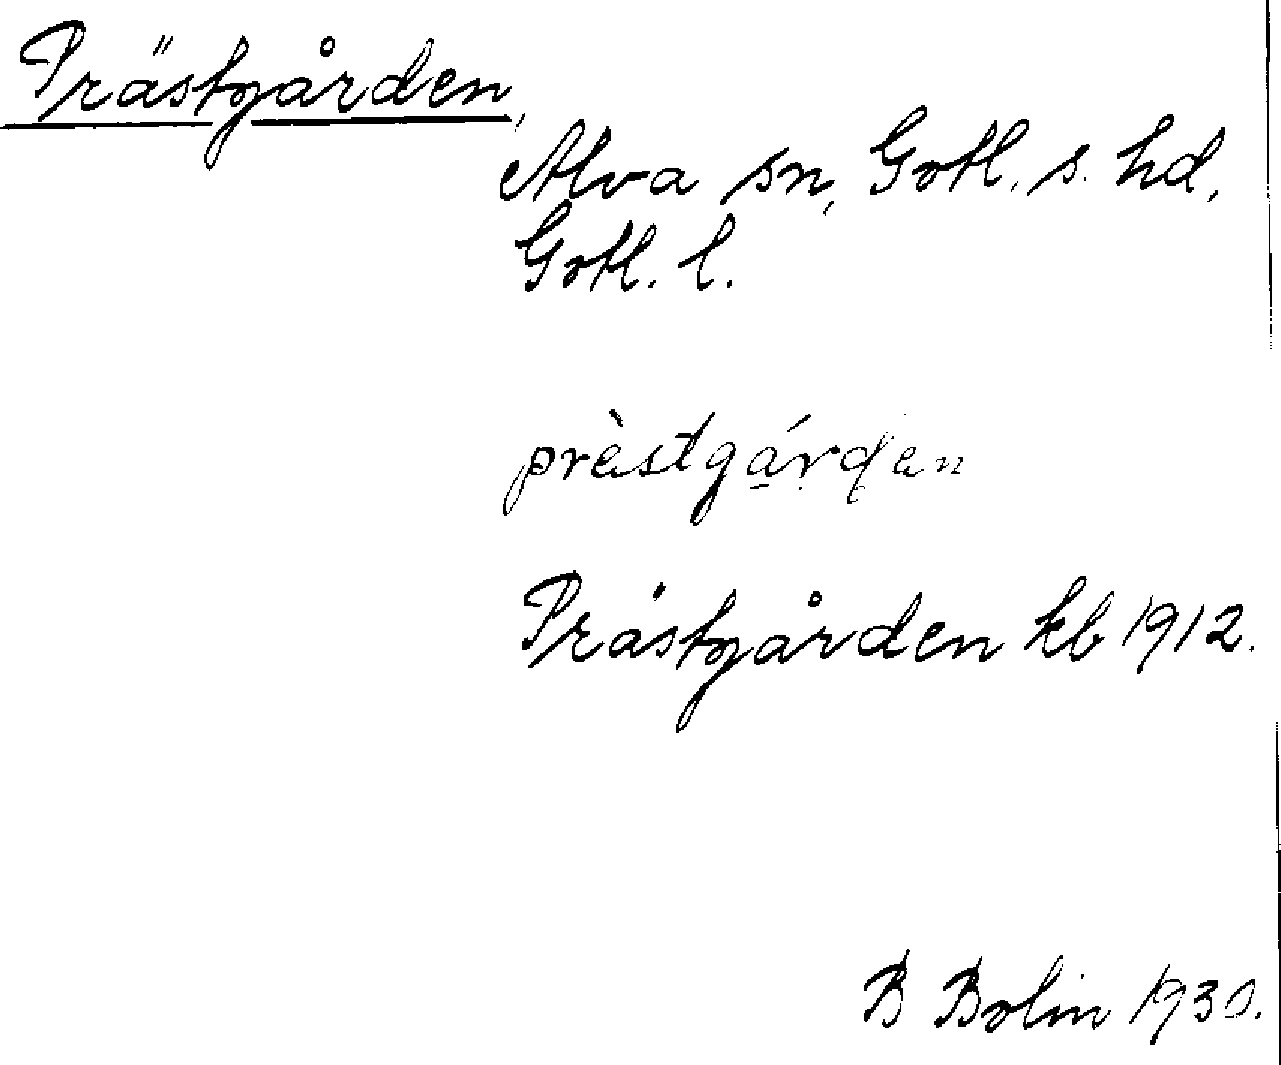 Prästgården,
Alva sn, Gotl. s. hd,
Gotl. l.
prèstgárden
Prästgården kb 1912.
B Bolin 1930.